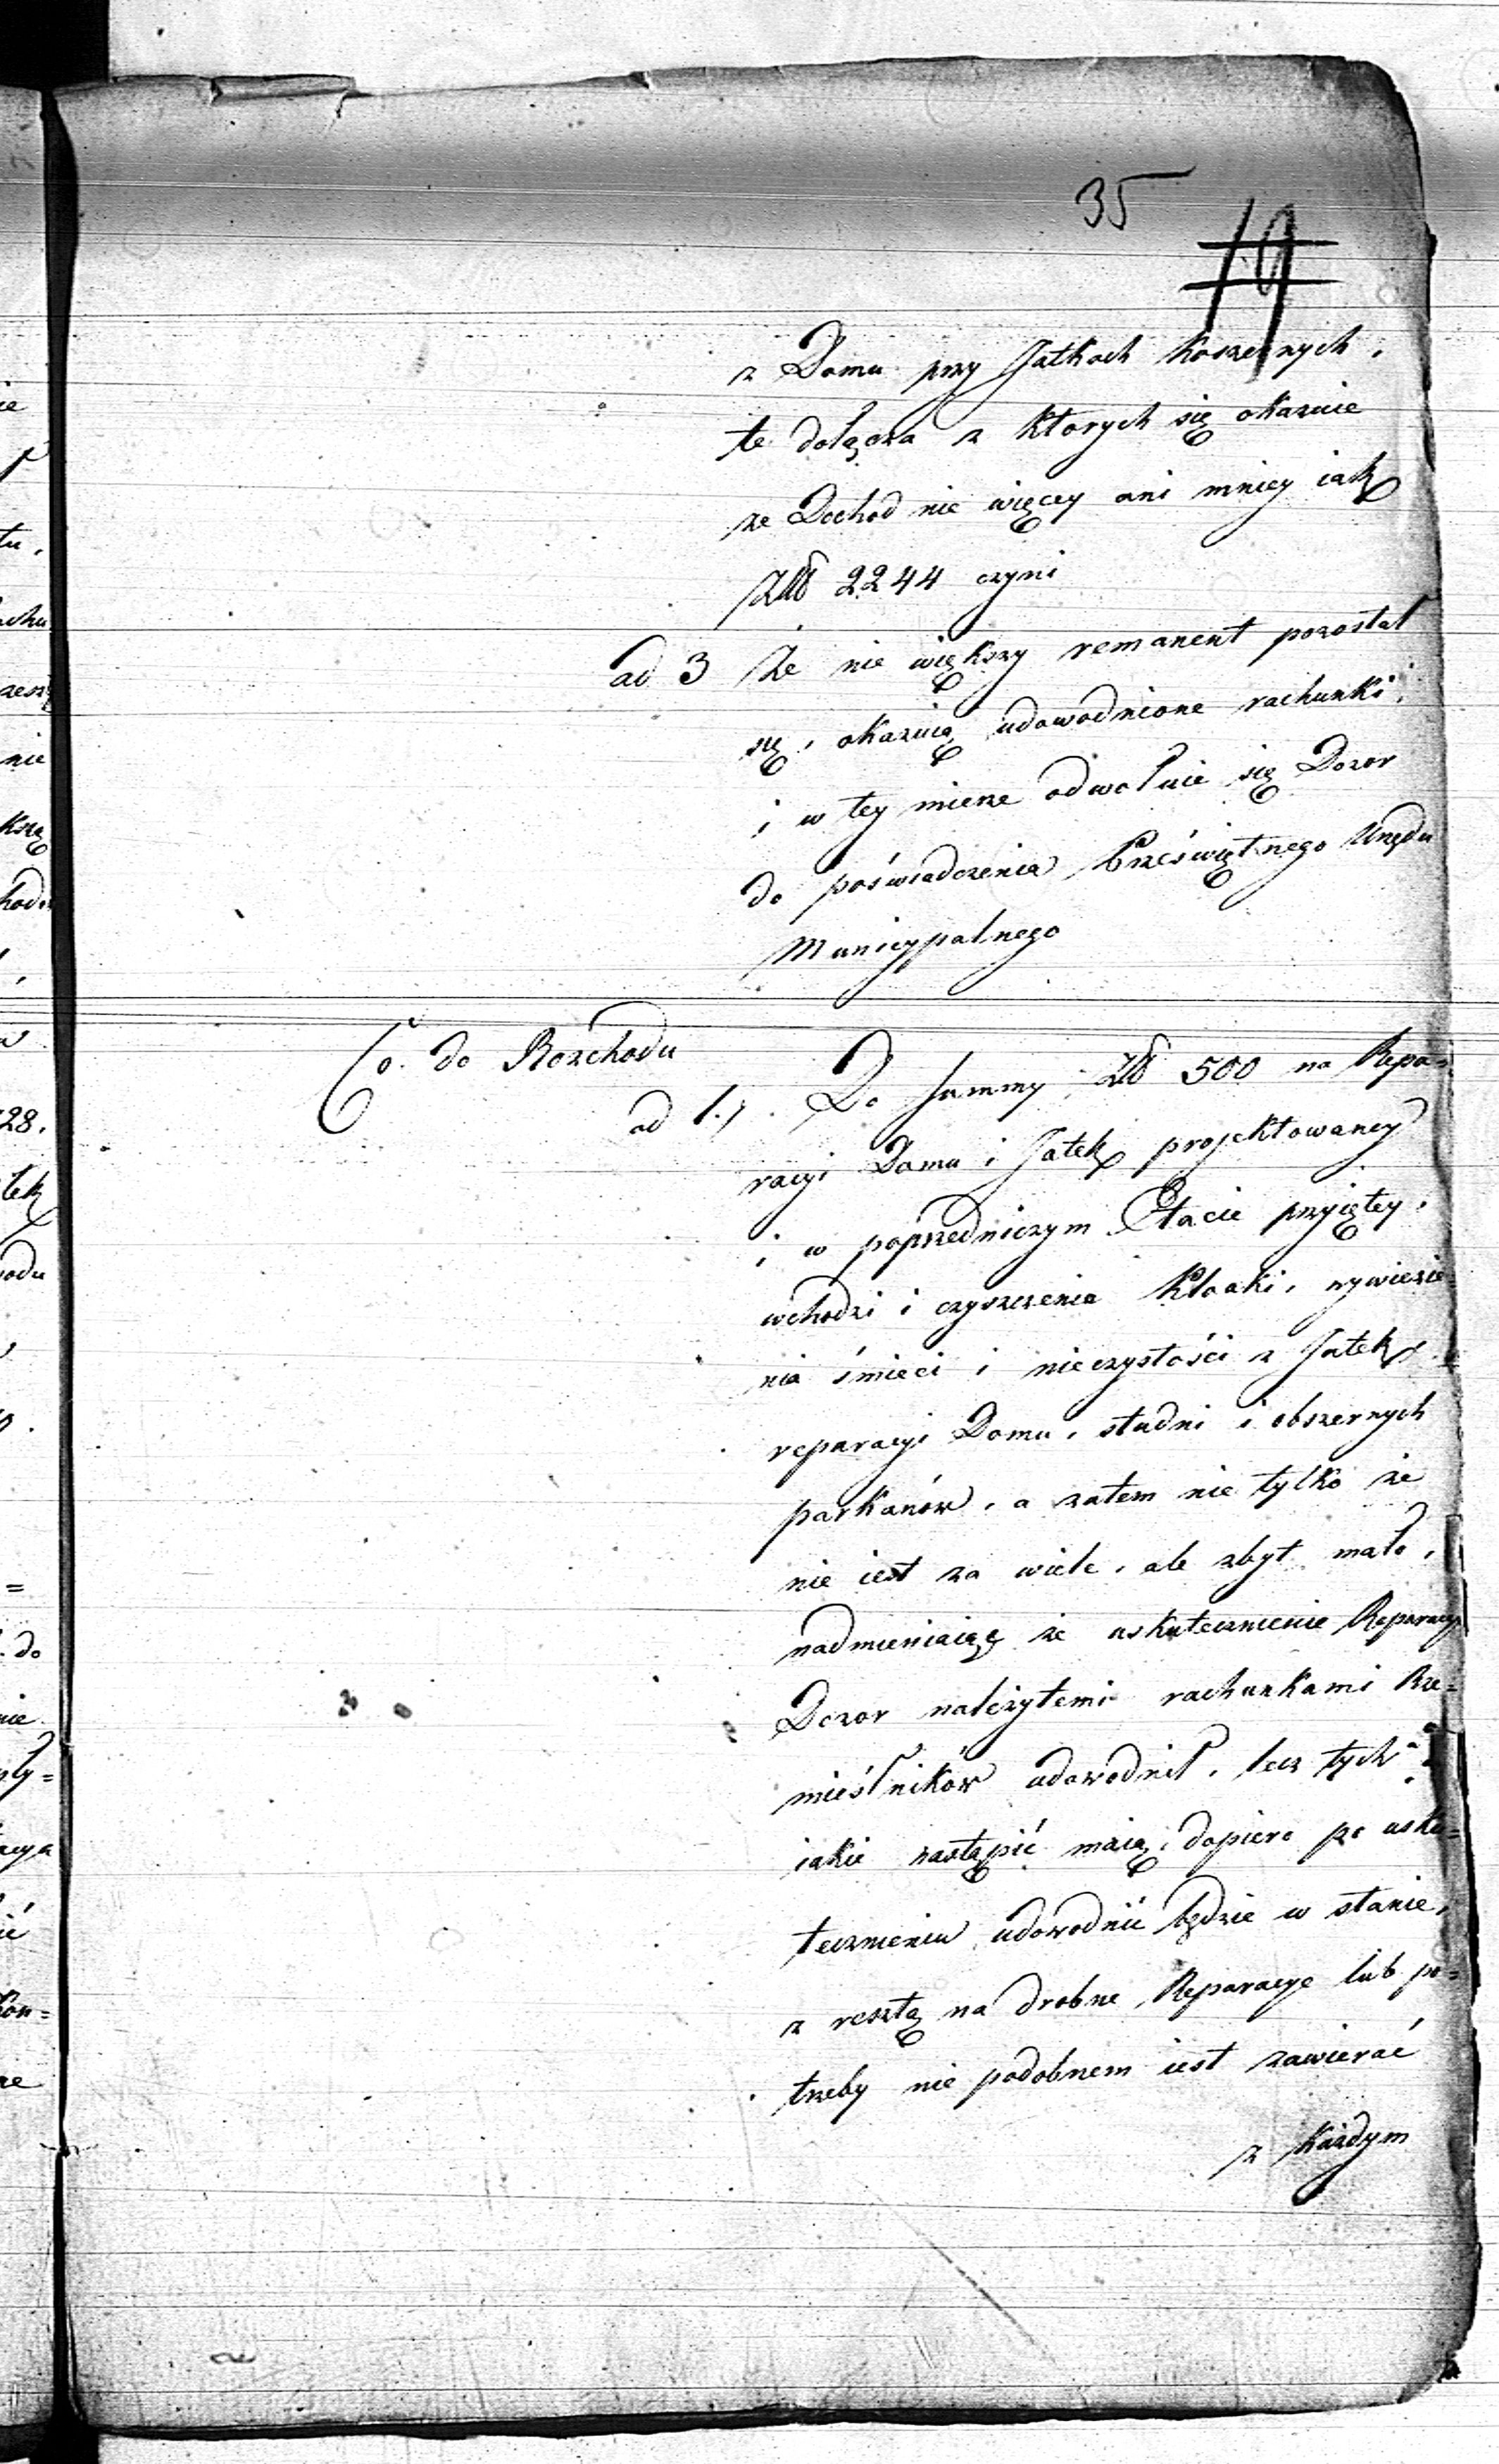 35
19
z Domu przy Jatkach koszernych,
te dołącza z ktorych się okazuie
że Dochod nie więcey ani mniey iak
Złł 2244 czyni
ad 3 Że nie większy remanent pozostał
się, okazuią udowodnione rachunki,
i w tey mierze odwołuie się Dozor
do poświadczenia Przeświętnego Urzędu
Municypalnego
Co do Rozchodu
ad 1.) Do summy Złł 500 na Repa=
racyi Domu i Jatek projektowaney
i w poprzedniczym Etacie przyiętey,
wchodzi i czyszczenia Kloaki, wywiezie=
nia śmieci i nieczystości z Jatek,
reparacyi Domu, studni i obszernych
parkanów, a zatem nie tylko że
nie iest za wiele, ale zbyt mało,
nadmieniaiąc że uskutecznienie Reparacyi
Dozor należytemi rachunkami Rze=
mieślników udowodnił, lecz tych
iakie nastąpić maią, dopiero po usku=
tecznieniu udowodnić będzie w stanie,
z resztą na drobne Reparacye lub po=
trzeby nie podobnem iest zawierać
z każdym